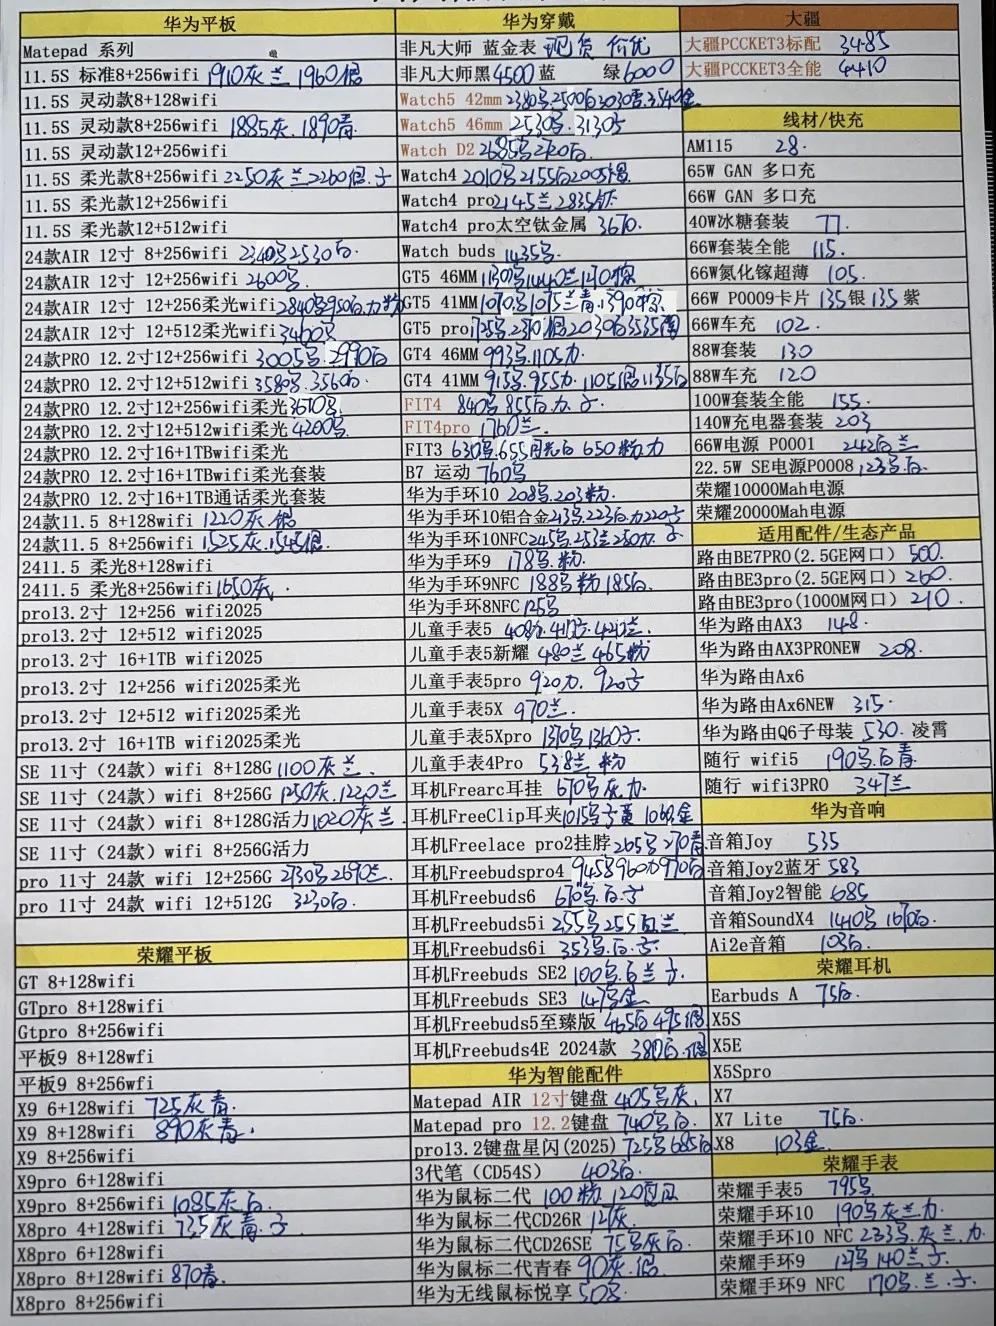 华为平板
Matepad 系列
11.5S 标准8+256wifi 1910灰兰 1960银
11.5S 灵动款8+128wifi
11.5S 灵动款8+256wifi 1885灰.1890青
11.5S 灵动款12+256wifi
11.5S 柔光款8+256wifi 2250灰兰2260银.子
11.5S 柔光款12+256wifi
11.5S 柔光款12+512wifi
24款AIR 12寸 8+256wifi 2340 2530白.
24款AIR 12寸 12+256wifi 2600
24款AIR 12寸 12+256柔光wifi 2840
24款AIR 12寸 12+512柔光wifi 3460
24款PRO 12.2寸12+256wifi 3005 2990白
24款PRO 12.2寸12+512wifi 3580 3560白.
24款PRO 12.2寸12+256wifi柔光
24款PRO 12.2寸12+512wifi柔光 4200
24款PRO 12.2寸16+1TBwifi柔光
24款PRO 12.2寸16+1TBwifi柔光套装
24款PRO 12.2寸16+1TB通话柔光套装
24款11.5 8+128wifi 1220灰.银
24款11.5 8+256wifi 1525灰.1545银
2411.5 柔光8+128wifi
2411.5 柔光8+256wifi 1650灰.
pro13.2寸 12+256 wifi2025
pro13.2寸 12+512 wifi2025
pro13.2寸 16+1TB wifi2025
pro13.2寸 12+256 wifi2025柔光
pro13.2寸 12+512 wifi2025柔光
pro13.2寸 16+1TB wifi2025柔光
SE 11寸（24款）wifi 8+128G 1100灰兰.
SE 11寸（24款）wifi 8+256G 1250灰.1220兰
SE 11寸（24款）wifi 8+128G活力 1020灰兰.
SE 11寸（24款）wifi 8+256G活力
pro 11寸 24款 wifi 12+256G 2730 2690兰.
pro 11寸 24款 wifi 12+512G 3230白.
荣耀平板
GT 8+128wifi
GTpro 8+128wifi
Gtpro 8+256wifi
平板9 8+128wfi
平板9 8+256wfi
X9 6+128wifi 725灰青.
X9 8+128wifi 890灰青.
X9 8+256wifi
X9pro 6+128wifi
X9pro 8+256wifi 1085灰白
X8pro 4+128wifi 735灰青.子
X8pro 6+128wifi
X8pro 8+128wifi 870青.
X8pro 8+256wifi
华为穿戴
非凡大师 蓝金表 现货 价优
非凡大师黑4500 蓝 绿6000
Watch5 42mm
Watch5 46mm 2530 3130
Watch D2 2685
Watch4 2010 2155白
Watch4 pro 2145兰 2835钛
Watch4 pro太空钛金属 3670.
Watch buds 1435
GT5 46MM
GT5 41MM
GT5 pro
GT4 46MM 993 1105
GT4 41MM 915 955 1105银1135白
FIT4 840 855白
FIT4pro 1760兰
FIT3 630 655月光白 650粉
B7 运动 760
华为手环10 208 203粉.
华为手环10铝合金 213 223白
华为手环10NFC 245 253兰
华为手环9 178 粉.
华为手环9NFC 188 粉 185白.
华为手环8NFC 125
儿童手表5
儿童手表5新耀 480兰 465粉
儿童手表5pro 920 920
儿童手表5X 970兰.
儿童手表5Xpro 1370 1360子.
儿童手表4Pro 538兰 粉
耳机Frearc耳挂 670 灰.
耳机FreeClip耳夹 1015
耳机Freelace pro2挂脖 265 270青
耳机Freebudspro4 945 960 970白
耳机Freebuds6 670 白.子
耳机Freebuds5i 255 255 兰
耳机Freebuds6i 353 白.子
耳机Freebuds SE2 100 白兰子.
耳机Freebuds SE3 147 金
耳机Freebuds5至臻版 465白 495银
耳机Freebuds4E 2024款 380白.银
华为智能配件
Matepad AIR 12寸键盘 405 灰.
Matepad pro 12.2键盘 740 白.
pro13.2键盘星闪(2025) 725 685白
3代笔（CD54S） 403白.
华为鼠标二代 100粉.120
华为鼠标二代CD26R 121灰.
华为鼠标二代CD26SE 75 灰白.
华为鼠标二代青春 90灰.银
华为无线鼠标悦享 50
大疆
大疆PCCKET3标配 3485
大疆PCCKET3全能 4410
线材/快充
AM115 28.
65W GAN 多口充
66W GAN 多口充
40W冰糖套装 77.
66W套装全能 115.
66W氮化镓超薄 105.
66W P0009卡片 135银 135 紫
66W车充 102.
88W套装 130
88W车充 120
100W套装全能 155.
140W充电器套装 203
66W电源 P0001 242白兰
22.5W SE电源P0008 123 白.
荣耀10000Mah电源
荣耀20000Mah电源
适用配件/生态产品
路由BE7PRO(2.5GE网口) 500.
路由BE3pro(2.5GE网口) 260.
路由BE3pro(1000M网口) 210.
华为路由AX3 148.
华为路由AX3PRONEW 208.
华为路由Ax6
华为路由Ax6NEW 315.
华为路由Q6子母装 530. 凌霄
随行 wifi5 190 白青
随行 wifi3PRO 347兰
华为音响
音箱Joy 535
音箱Joy2蓝牙 583
音箱Joy2智能 685
音箱SoundX4 1440 1670白.
Ai2e音箱 103白.
荣耀耳机
Earbuds A 75白.
X5S
X5E
X5Spro
X7
X7 Lite 75白.
X8 103金.
荣耀手表
荣耀手表5 795
荣耀手环10 190 灰兰
荣耀手环10 NFC 233 灰兰.
荣耀手环9 140兰子.
荣耀手环9 NFC 170 兰.子.